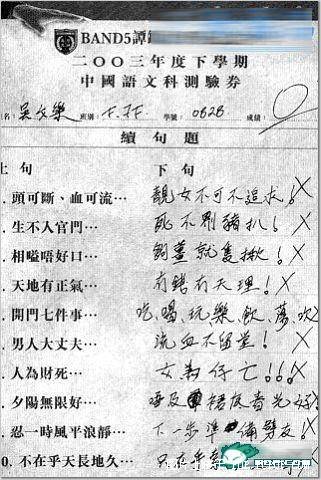 BAND5譚
二〇〇三年度下學期
中國語文科測驗劵
名: 吳文樂 班別: F.3F 學號: 0626 成績: 0
續句題
上句 下句
. 頭可斷、血可流⋯ 靚女不可不追求! X
. 生不入官門⋯ 死不𠝹豬扒! X
. 相嗌唔好口⋯ 就隻揪! X
. 天地有正氣⋯ 有錢有天理! X
. 開門七件事⋯ 吃、喝、玩、樂、飲、蕩、吹 X
. 男人大丈夫⋯ 流血不留堂! X
. 人為財死⋯ 女為仔亡!!! X
. 夕陽無限好⋯ 唔及裙底春光好! X
. 忍一時風平浪靜⋯ 下一步準備劈友! X
0. 不在乎天長地久⋯ 只在乎